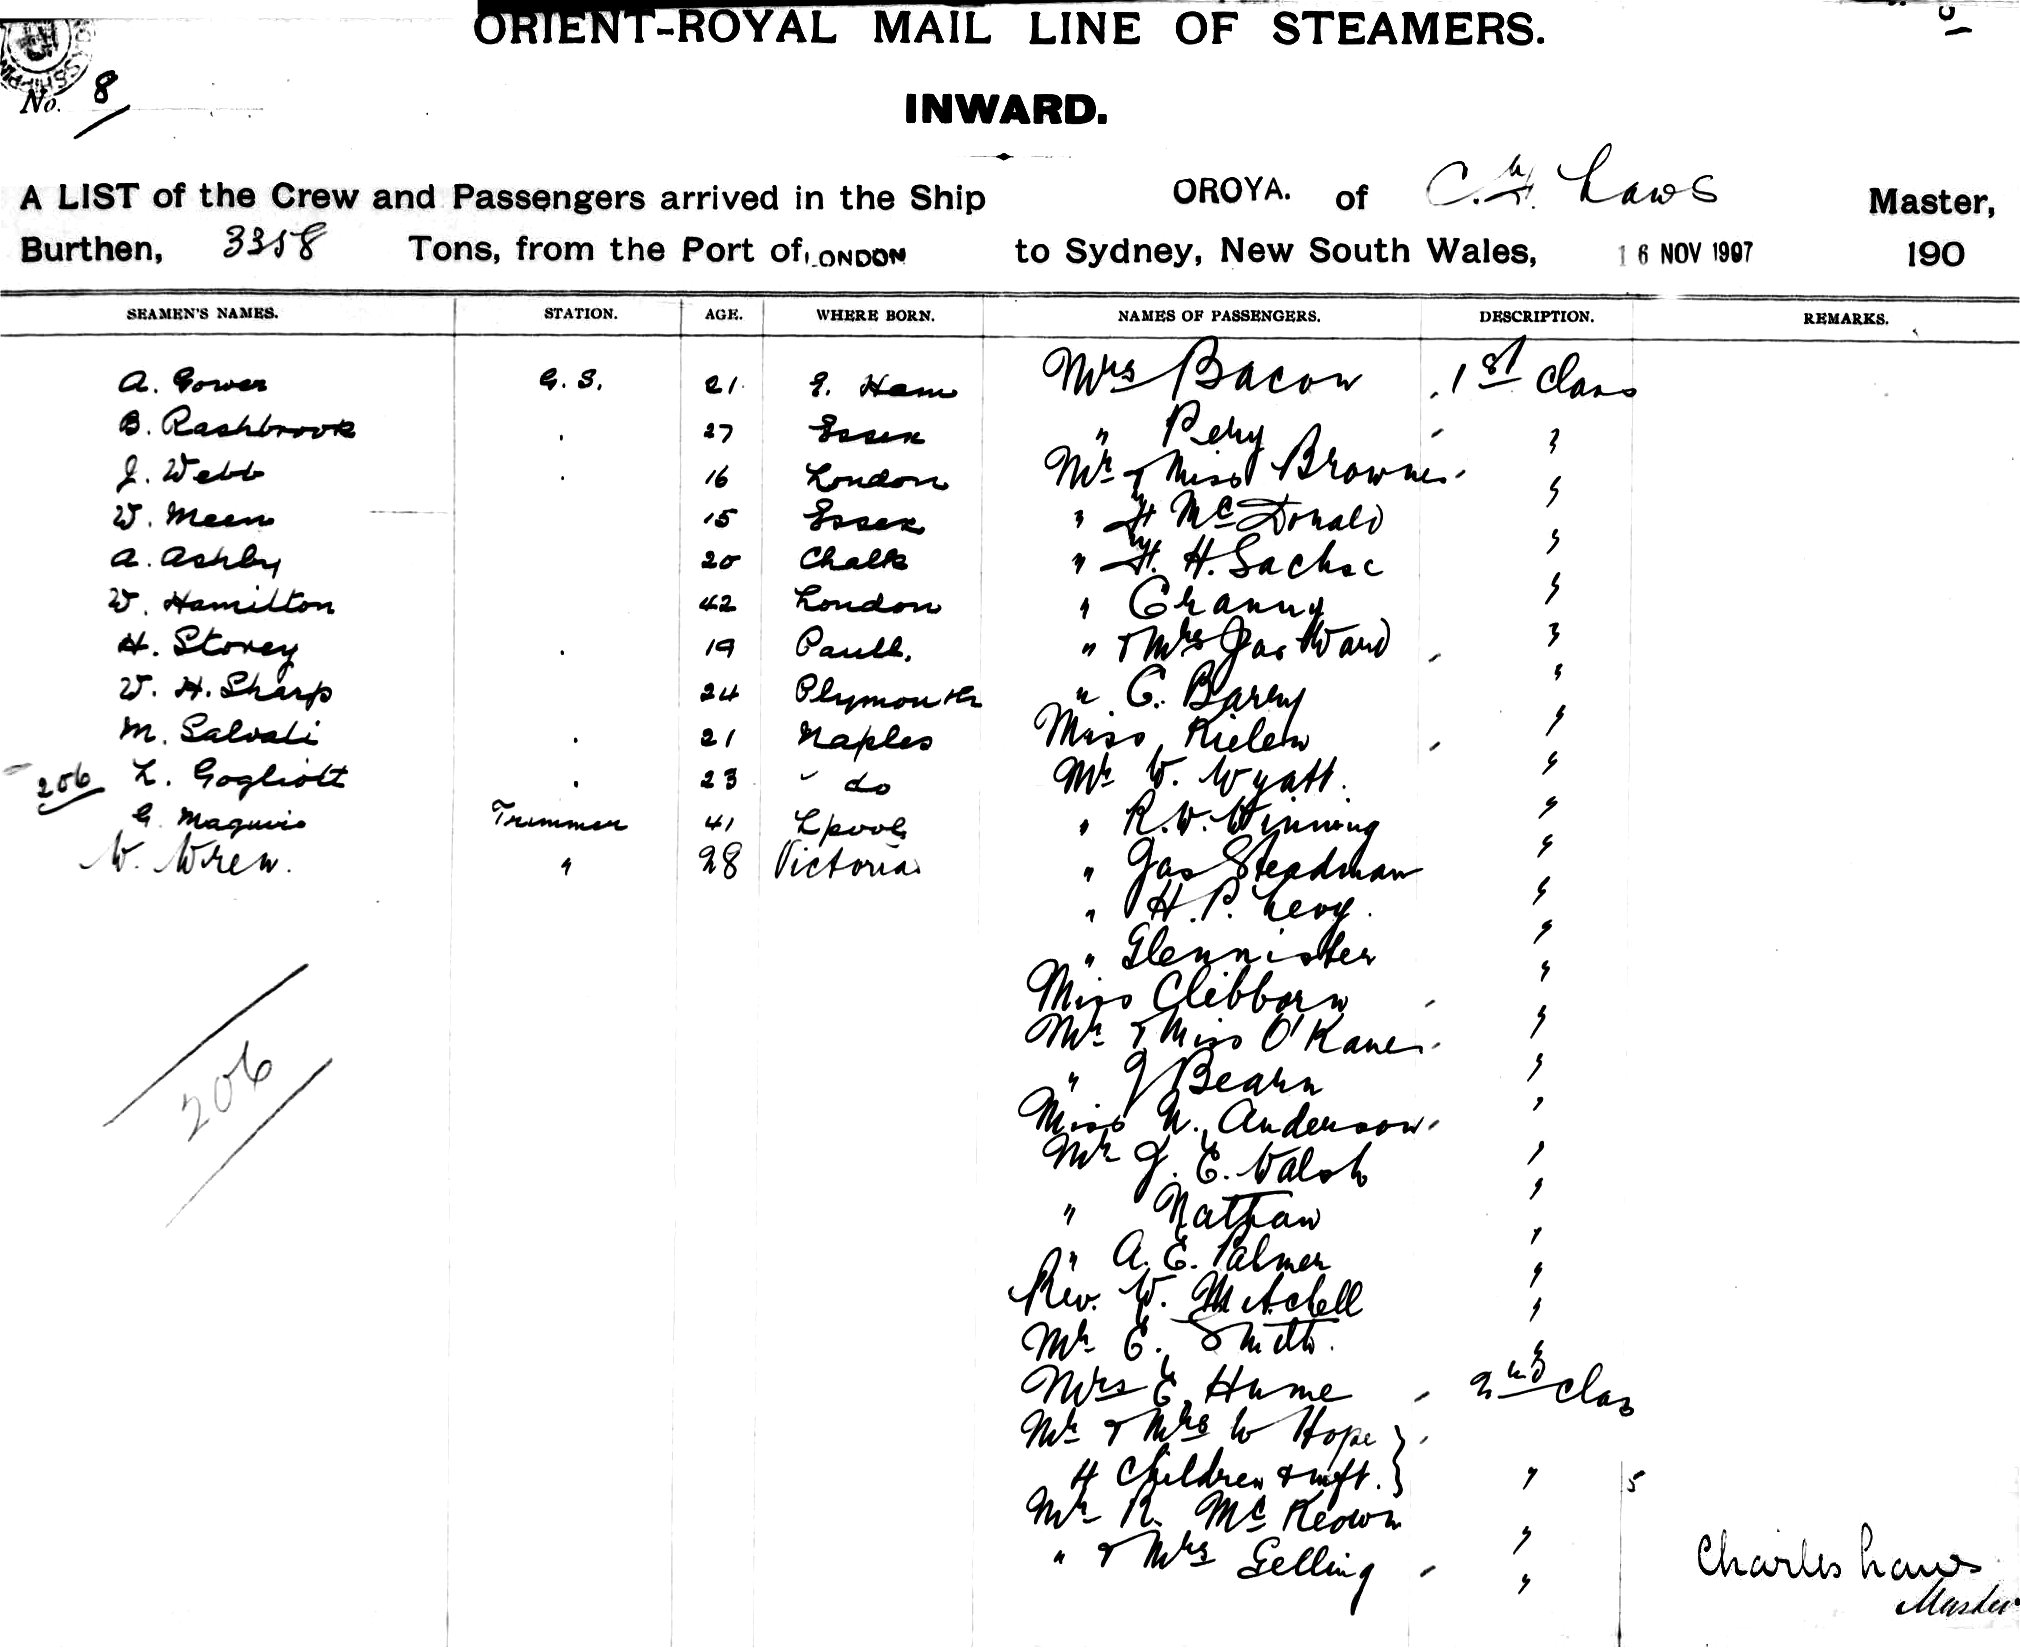 ORIENT-ROYAL MAIL LINE OF STEAMERS.
No. 8
INWARD.
A LIST of the Crew and Passengers arrived in the Ship OROYA. of C. Laws Master,
Burthen, 3358 Tons, from the Port of LONDON to Sydney, New South Wales, 16 NOV 1907 190
SEAMEN'S NAMES. STATION. AGE. WHERE BORN. NAMES OF PASSENGERS. DESCRIPTION. REMARKS.
A. Gower G. S. 21 E. Ham Mrs Bacon 1st Class
B. Rashbrook 27 Essex " "
J. Webb 16 London Mr & Miss Browne "
W. Meen 15 Essex " H McDonald "
A. Ashby 20 Chalk " H. H. Sachse "
W. Hamilton 42 London " Granny "
H. Storey 19 Paull. " & Mrs Jas Ward "
W. H. Sharp 24 Plymouth " C. Barry "
M. Salvati 21 Naples Miss Kielew "
206 L. Gogliott 23 " do Mr W. Wyatt. "
G. Maguire Trimmer 41 Lpool " R. W. Winning "
W. Wren. " 28 Victoria " Jas Steadman "
" H. P. Levy. "
" Glennister "
Miss Clibborn "
Mr & Miss O'Kane "
206
" J Bearn "
Miss N. Anderson "
Mr J. E. Walsh "
" Nathan "
" A. E. Palmer "
Rev. W. Mitchell "
Mr E. Smith. "
Mrs E. Hume 2nd Class
Mr & Mrs W Hope
4 Children & inft. " 5
Mr R. McKeown "
" & Mrs Gelling "
Charles Laws
Master